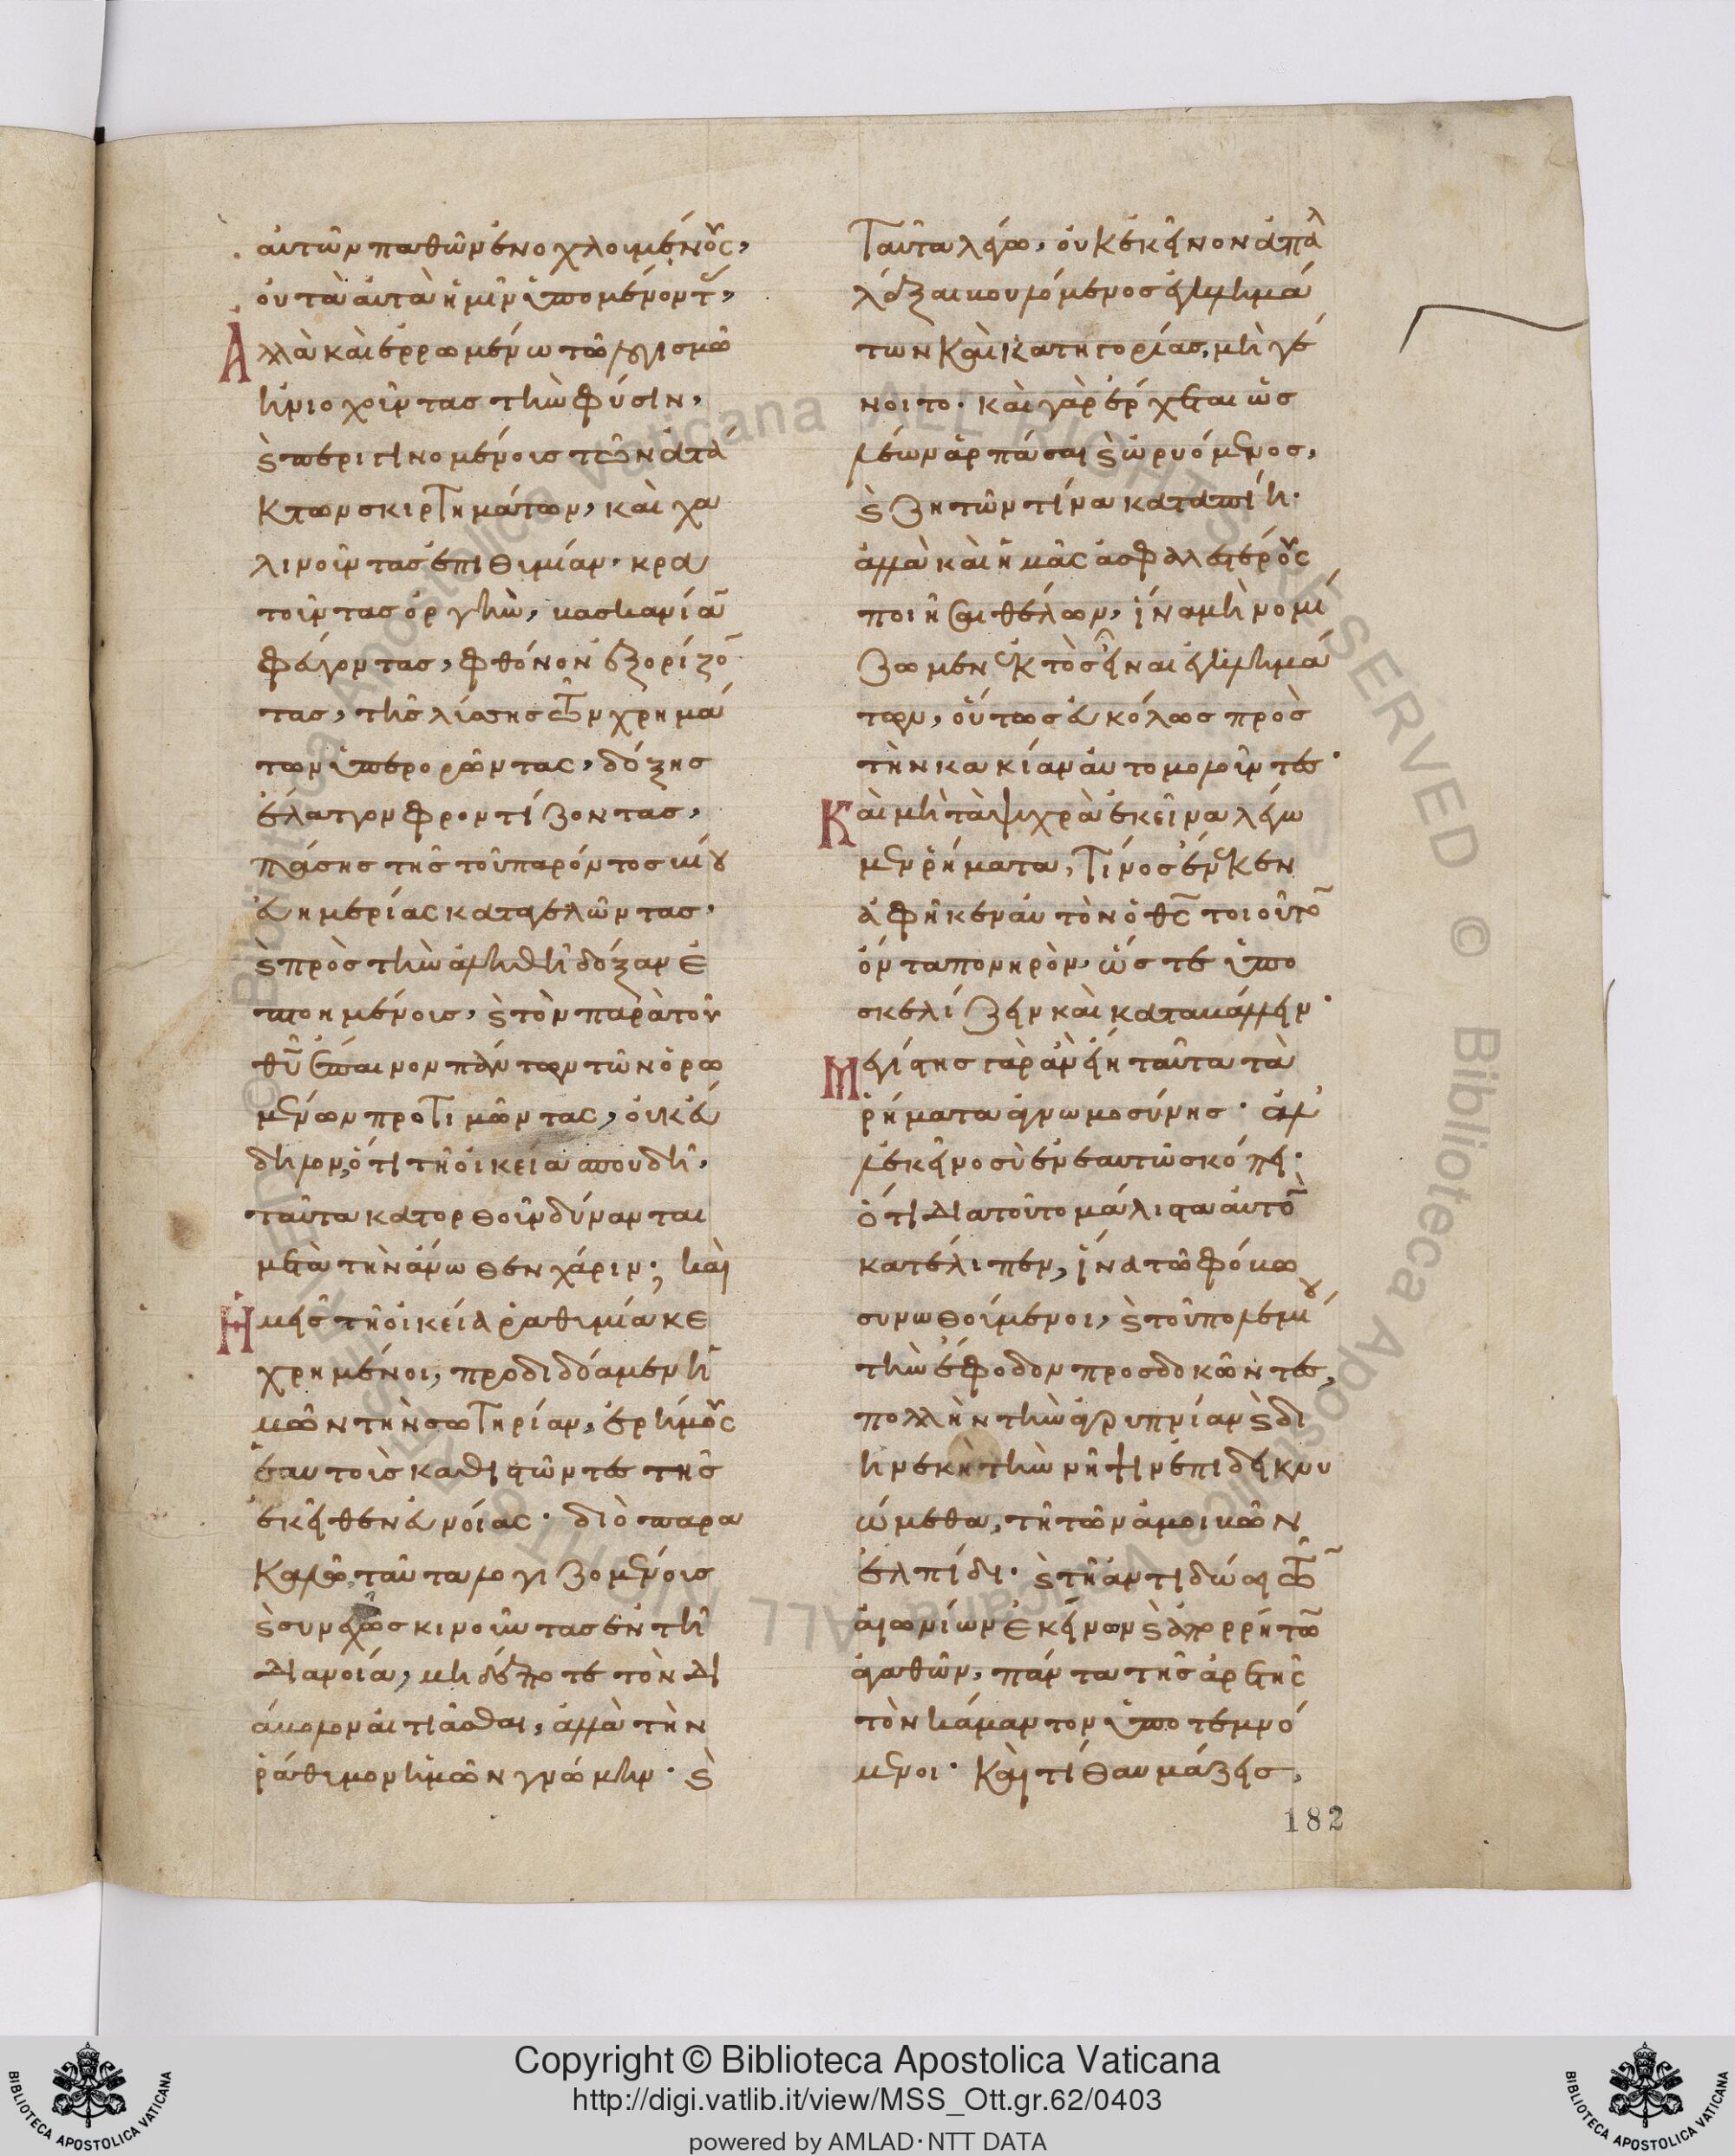 αυτῶν παθῶν ἐνοχλουμένους,
οὐ τὰ αὐτὰ ἡμῖν ὑπομένοντ(ας),
Ἀλλὰ καὶ ἐρρωμένω τῶ λογισμῶ
ἡνιοχοῦντας τὴν φύσιν,
καὶ περιγινομένους τῶν ἀτά
κτων σκιρτημάτων, καὶ χα
λινοῦντας ἐπιθυμίαν· κρα
τοῦντας ὀργὴν, βασκανίαν
φεύγοντας, φθόνον ἐξορίζον
τας, τῆς λύσσης τῶν χρημά
των ὑπερορῶντας, δόξης
ἔλαττον φροντίζοντας,
πάσης τῆς τοῦ παρόντος βίου
εὐημερίας καταγελῶντας·
καὶ πρὸς τὴν ἀληθῆ δόξαν ἐ
πτοημένους, καὶ τὸν παρὰ τοῦ
θυ ἔπαινον πάντων τῶν ὁρω
μένων προτιμῶντας, οὐκ εὔ
δηλον, ὅτι τῆ οἰκεία σπουδῆ,
ταῦτα κατορθοῦν δύνανται
μετὰ τὴν ἄνωθεν χάριν; καὶ
Ἡμεῖς τῆ οἰκεία ῥαθυμία κε
χρημένοι, προδιδόαμεν ἡ
μῶν τὴν σωτηρίαν, ἐρήμους
ἑαυτοὺς καθιστῶντες τῆς
ἐκεῖθεν εὐνοίας· διὸ παρα
καλῶ, ταῦτα λογιζομένους
καὶ συνεχῶς κινοῦντας ἐν τῆ
διανοία, μηδέποτε τὸν δι
άβολον αἰτιᾶσθαι, ἀλλὰ τὴν
ῥάθυμον ἡμῶν γνώμην· καὶ
Ταῦτα λέγω, οὐκ ἐκεῖνον ἀπαλ
λάξαι βουλόμενος ἐγκλημά
των καὶ κατηγορίας, μὴ γέ
νοιτο· καὶ γὰρ ἔρχεται ὡς
λέων ἁρπάσαι καὶ ὠρυόμενος,
καὶ ζητῶν τίνα καταπίη·
ἀλλὰ καὶ ἡμᾶς ἀσφαλεστέρους
ποιῆσαι θέλων, ἵνα μὴ νομί
ζωμεν ἐκτὸς εἶναι ἐγκλημά
των, οὕτως εὐκόλως πρὸς
τὴν κακίαν αὐτομολοῦντες·
Καὶ μὴ τὰ ψυχρὰ ἐκεῖνα λέγω
μεν ῥήματα, Τίνος ἕνεκεν
ἀφῆκεν αὐτὸν ὁ θς τοιοῦτον
ὄντα πονηρὸν, ὥστε ὑπο
σκελίζειν καὶ καταβάλλειν·
Μεγίστης γὰρ ἂν εἴη ταῦτα τὰ
ῥήματα ἀγνωμοσύνης· ἀλ
λ' ἐκεῖνο σὺ ἐν ἑαυτῶ σκόπει·
ὅτι διατοῦτο μάλιστα αὐτὸν
κατέλιπεν, ἵνα τῶ φόβω
συνωθούμενοι, καὶ τοῦ πολεμίου
τὴν ἔφοδον προσδοκῶντες,
πολλὴν τὴν ἀγρυπνίαν καὶ δι
ηνεκῆ τὴν νῆψιν ἐπιδεικνυ
ώμεθα, τῆ τῶν ἀμοιβῶν
ἐλπίδι· καὶ τῆ ἀντιδώσει τῶν
αἰωνίων ἐκείνων καὶ ἀπορρήτων
ἀγαθῶν, πάντα τῆς ἀρετῆς
τὸν κάματον ὑποτεμνό
μενοι· Καὶ τί θαυμάζεις,
182
Copyright © Biblioteca Apostolica Vaticana
http://digi.vatlib.it/view/MSS_Ott.gr.62/0403
powered by AMLAD·NTT DATA